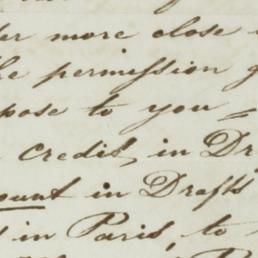 more close
permission
pose to you =
credit, in Dr
ount in Drafts
in Paris, to